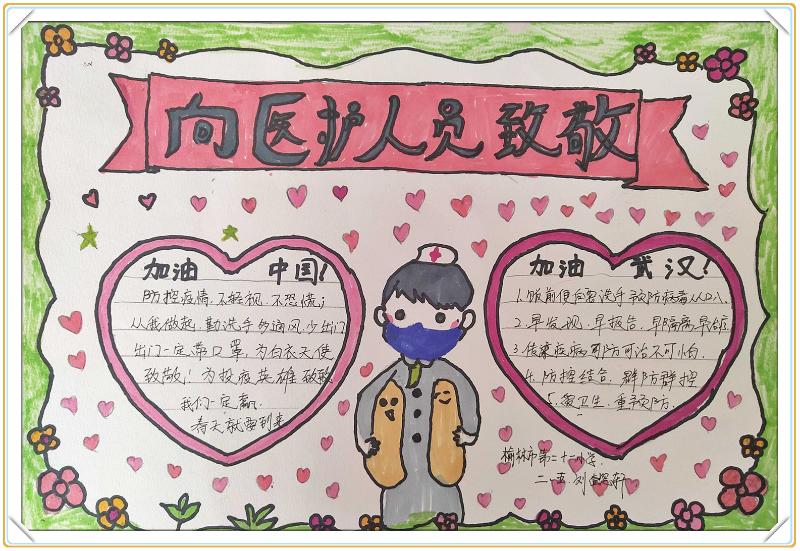 向医护人员致敬
加油 中国!
防控疫情.不轻视.不恐慌;
从我做起.勤洗手多通风少出门
出门一定带口罩,为白衣天使
致敬;为投疫英雄致敬
我们一定赢.
春天就要到来
加油 武汉!
1.饭前便后要洗手预防病毒从口入
2.早发现.早报告.早隔离早治
3.传染疾病可防可治不可怕.
4.防控结合.群防群控
5.爱卫生.重预防.
榆林市第二十一小学
二.五 刘 轩